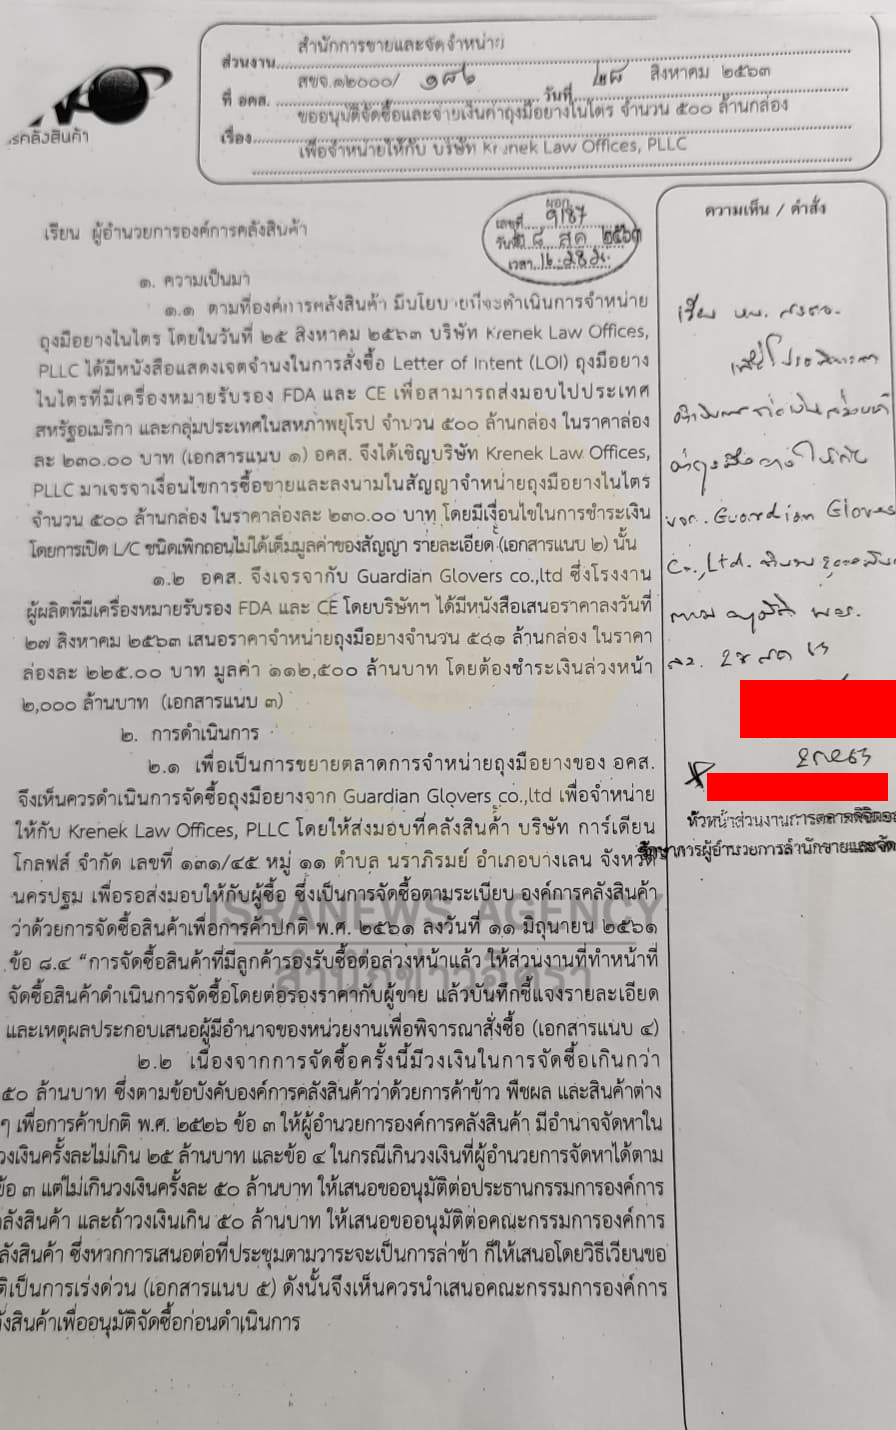 สำนักการขายและจัดจำหน่าย
ส่วนงาน
สขจ.๑๒๐๐๐/ ๑๘๖ ๒๘ สิงหาคม ๒๕๖๓
ที่ อคส. วันที่
ขออนุมัติจัดซื้อและจ่ายเงินค่าถุงมือยางไนไตร จำนวน ๕๐๐ ล้านกล่อง
เรื่อง
เพื่อจำหน่ายให้กับ บริษัท Krenek Law Offices, PLLC
รคลังสินค้า
เรียน ผู้อำนวยการองค์การคลังสินค้า
ผอก.
เลขที่ 9187
วันที่ ๒๘ สค ๒๕๖๓
เวลา
ความเห็น / คำสั่ง
๑. ความเป็นมา
๑.๑ ตามที่องค์การคลังสินค้า มีนโยบายที่จะดำเนินการจำหน่าย
ถุงมือยางไนไตร โดยในวันที่ ๒๕ สิงหาคม ๒๕๖๓ บริษัท Krenek Law Offices,
PLLC ได้มีหนังสือแสดงเจตจำนงในการสั่งซื้อ Letter of Intent (LOI) ถุงมือยาง
ไนไตรที่มีเครื่องหมายรับรอง FDA และ CE เพื่อสามารถส่งมอบไปประเทศ
สหรัฐอเมริกา และกลุ่มประเทศในสหภาพยุโรป จำนวน ๕๐๐ ล้านกล่อง ในราคากล่อง
ละ ๒๓๐.๐๐ บาท (เอกสารแนบ ๑) อคส. จึงได้เชิญบริษัท Krenek Law Offices,
PLLC มาเจรจาเงื่อนไขการซื้อขายและลงนามในสัญญาจำหน่ายถุงมือยางไนไตร
จำนวน ๕๐๐ ล้านกล่อง ในราคากล่องละ ๒๓๐.๐๐ บาท โดยมีเงื่อนไขในการชำระเงิน
โดยการเปิด L/C ชนิดเพิกถอนไม่ได้เต็มมูลค่าของสัญญา รายละเอียด (เอกสารแนบ ๒) นั้น
๑.๒ อคส. จึงเจรจากับ Guardian Glovers co.,ltd ซึ่งโรงงาน
ผู้ผลิตที่มีเครื่องหมายรับรอง FDA และ CE โดยบริษัทฯ ได้มีหนังสือเสนอราคาลงวันที่
๒๗ สิงหาคม ๒๕๖๓ เสนอราคาจำหน่ายถุงมือยางจำนวน ล้านกล่อง ในราคา
ล่องละ ๒๒๕.๐๐ บาท มูลค่า ๑๑๒,๕๐๐ ล้านบาท โดยต้องชำระเงินล่วงหน้า
๒,๐๐๐ ล้านบาท (เอกสารแนบ ๓)
๒. การดำเนินการ
๒.๑ เพื่อเป็นการขยายตลาดการจำหน่ายถุงมือยางของ อคส.
จึงเห็นควรดำเนินการจัดซื้อถุงมือยางจาก Guardian Glovers co.,ltd เพื่อจำหน่าย
ให้กับ Krenek Law Offices, PLLC โดยให้ส่งมอบที่คลังสินค้า บริษัท การ์เดียน
โกลฟส์ จำกัด เลขที่ ๑๓๑/๔๕ หมู่ ๑๑ ตำบล นราภิรมย์ อำเภอบางเลน จังหวัด
นครปฐม เพื่อรอส่งมอบให้กับผู้ซื้อ ซึ่งเป็นการจัดซื้อตามระเบียบ องค์การคลังสินค้า
ว่าด้วยการจัดซื้อสินค้าเพื่อการค้าปกติ พ.ศ. ๒๕๖๑ ลงวันที่ ๑๑ มิถุนายน ๒๕๖๑
ข้อ ๘.๔ “การจัดซื้อสินค้าที่มีลูกค้ารองรับซื้อต่อล่วงหน้าแล้ว ให้ส่วนงานที่ทำหน้าที่
จัดซื้อสินค้าดำเนินการจัดซื้อโดยต่อรองราคากับผู้ขาย แล้วบันทึกชี้แจงรายละเอียด
และเหตุผลประกอบเสนอผู้มีอำนาจของหน่วยงานเพื่อพิจารณาสั่งซื้อ (เอกสารแนบ ๔)
๒.๒ เนื่องจากการจัดซื้อครั้งนี้มีวงเงินในการจัดซื้อเกินกว่า
๕๐ ล้านบาท ซึ่งตามข้อบังคับองค์การคลังสินค้าว่าด้วยการค้าข้าว พืชผล และสินค้าต่าง
ๆ เพื่อการค้าปกติ พ.ศ. ๒๕๒๖ ข้อ ๓ ให้ผู้อำนวยการองค์การคลังสินค้า มีอำนาจจัดหาใน
วงเงินครั้งละไม่เกิน ๒๕ ล้านบาท และข้อ ๔ ในกรณีเกินวงเงินที่ผู้อำนวยการจัดหาได้ตาม
ข้อ ๓ แต่ไม่เกินวงเงินครั้งละ ๕๐ ล้านบาท ให้เสนอขออนุมัติต่อประธานกรรมการองค์การ
ลังสินค้า และถ้าวงเงินเกิน ๕๐ ล้านบาท ให้เสนอขออนุมัติต่อคณะกรรมการองค์การ
ลังสินค้า ซึ่งหากการเสนอต่อที่ประชุมตามวาระจะเป็นการล่าช้า ก็ให้เสนอโดยวิธีเวียนขอ
ติเป็นการเร่งด่วน (เอกสารแนบ ๕) ดังนั้นจึงเห็นควรนำเสนอคณะกรรมการองค์การ
ังสินค้าเพื่ออนุมัติจัดซื้อก่อนดำเนินการ
เรียน
Guardian Gloves
Co., Ltd.
หัวหน้าส่วนงานการตลาด
รักษาการผู้อำนวยการสำนักขายและจัด
ISRANEWS AGENCY
สำนักข่าวอิศรา